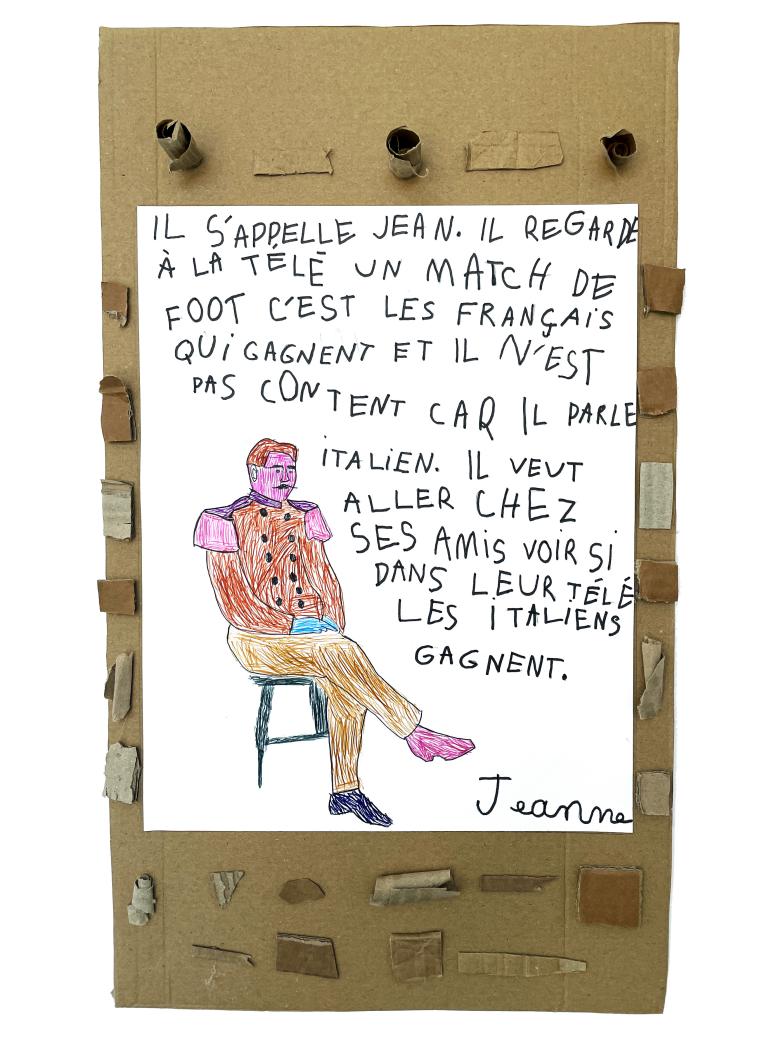 IL S'APPELLE JEAN. IL REGARDE
À LA TÉLÉ UN MATCH DE
FOOT C'EST LES FRANÇAiS
QUi GAGNENT ET IL N'EST
PAS CONTENT CAR IL PARLE
iTALiEN. IL VEUT
ALLER CHEZ
SES AMIS VOIR Si
DANS LEUR TÉLÉ
LES iTALIENS
GAGNENT.
Jeanne